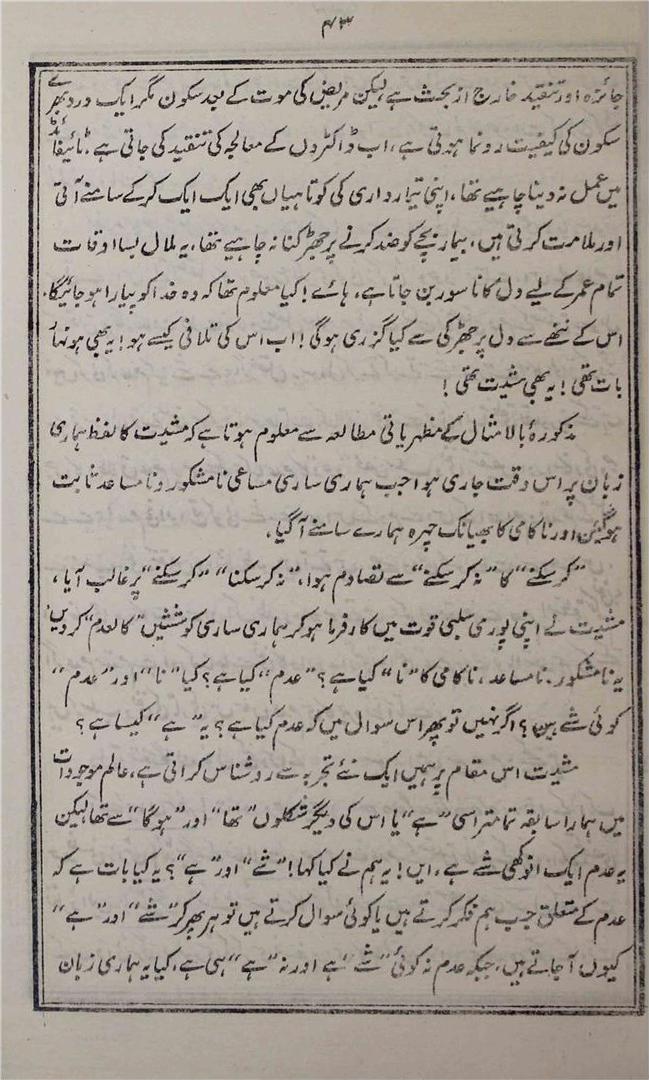 ۴۳
جائزہ اور تنقید خارج از بحث ہے لیکن مریض کی موت کے بعد سکون مگر ایک درد بھرے
سکون کی کیفیت رونما ہوتی ہے، اب ڈاکٹروں کے معالجہ کی تنقید کی جاتی ہے! ٹائیفائڈ
میں عمل نہ دینا چاہیے تھا، اپنی تیمارداری کی کوتاہیاں بھی ایک ایک کرکے سامنے آتی
اور ملامت کرتی ہیں، بیمار بچے کو ضد کرنے پر جھڑکنا نہ چاہیے تھا، یہ ملال بسا اوقات
تمام عمر کے لیے دل کا ناسور بن جاتا ہے، ہائے! کیا معلوم تھا کہ وہ خدا کو پیارا ہو جائیگا،
اس کے ننھے سے دل پر جھڑکی سے کیا گزری ہوگی! اب اس کی تلافی کیسے ہو! یہ بھی ہونہار
بات تھی! یہ بھی مشیت تھی!
مذکورۂ بالا مثال کے مظہریاتی مطالعہ سے معلوم ہوتا ہے کہ مشیت کا لفظ ہماری
زبان پر اس وقت جاری ہوا جب ہماری ساری مساعی نامشکور و نامساعد ثابت
ہوگئیں اور ناکامی کا بھیانک چہرہ ہمارے سامنے آگیا،
”کرسکنے“ کا ”نہ کرسکنے“ سے تصادم ہوا، ”نہ کرسکنا“ ”کرسکنے“ پر غالب آیا،
مشیت نے اپنی پوری سلبی قوت میں کارفرما ہو کر ہماری ساری کوششیں ”کالعدم“ کردیں،
یہ نامشکور، نامساعد، ناکامی کا ”نا“ کیا ہے؟ ”عدم“ کیا ہے؟ کیا ”نا“ اور ”عدم“
کوئی شے ہیں؟ اگر نہیں تو پھر اس سوال میں کہ عدم کیا ہے؟ یہ ”ہے“ کیسا ہے؟
مشیت اس مقام پر ہمیں ایک نئے تجربہ سے روشناس کراتی ہے، عالم موجودات
میں ہمارا سابقہ تمام تر اسی ”ہے“ یا اس کی دیگر شکلوں ”تھا“ اور ”ہوگا“ سے تھا لیکن
یہ عدم ایک انوکھی شے ہے، ایں! یہ ہم نے کیا کہا! ”شے“ اور ”ہے“؟ یہ کیا بات ہے کہ
عدم کے متعلق جب ہم فکر کرتے ہیں یا کوئی سوال کرتے ہیں تو ہر پھر کر ”شے“ اور ”ہے“
کیوں آجاتے ہیں، جبکہ عدم نہ کوئی ”شے“ ہے اور نہ ”ہے“ ہی ہے، کیا یہ ہماری زبان